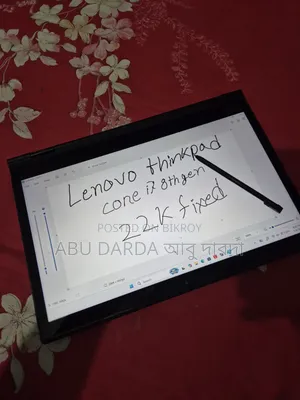 Lenovo thinkpad
core i7 8th gen
22K fixed
POSTED ON BIKROY
ABU DARDA আবু দারদা
Search